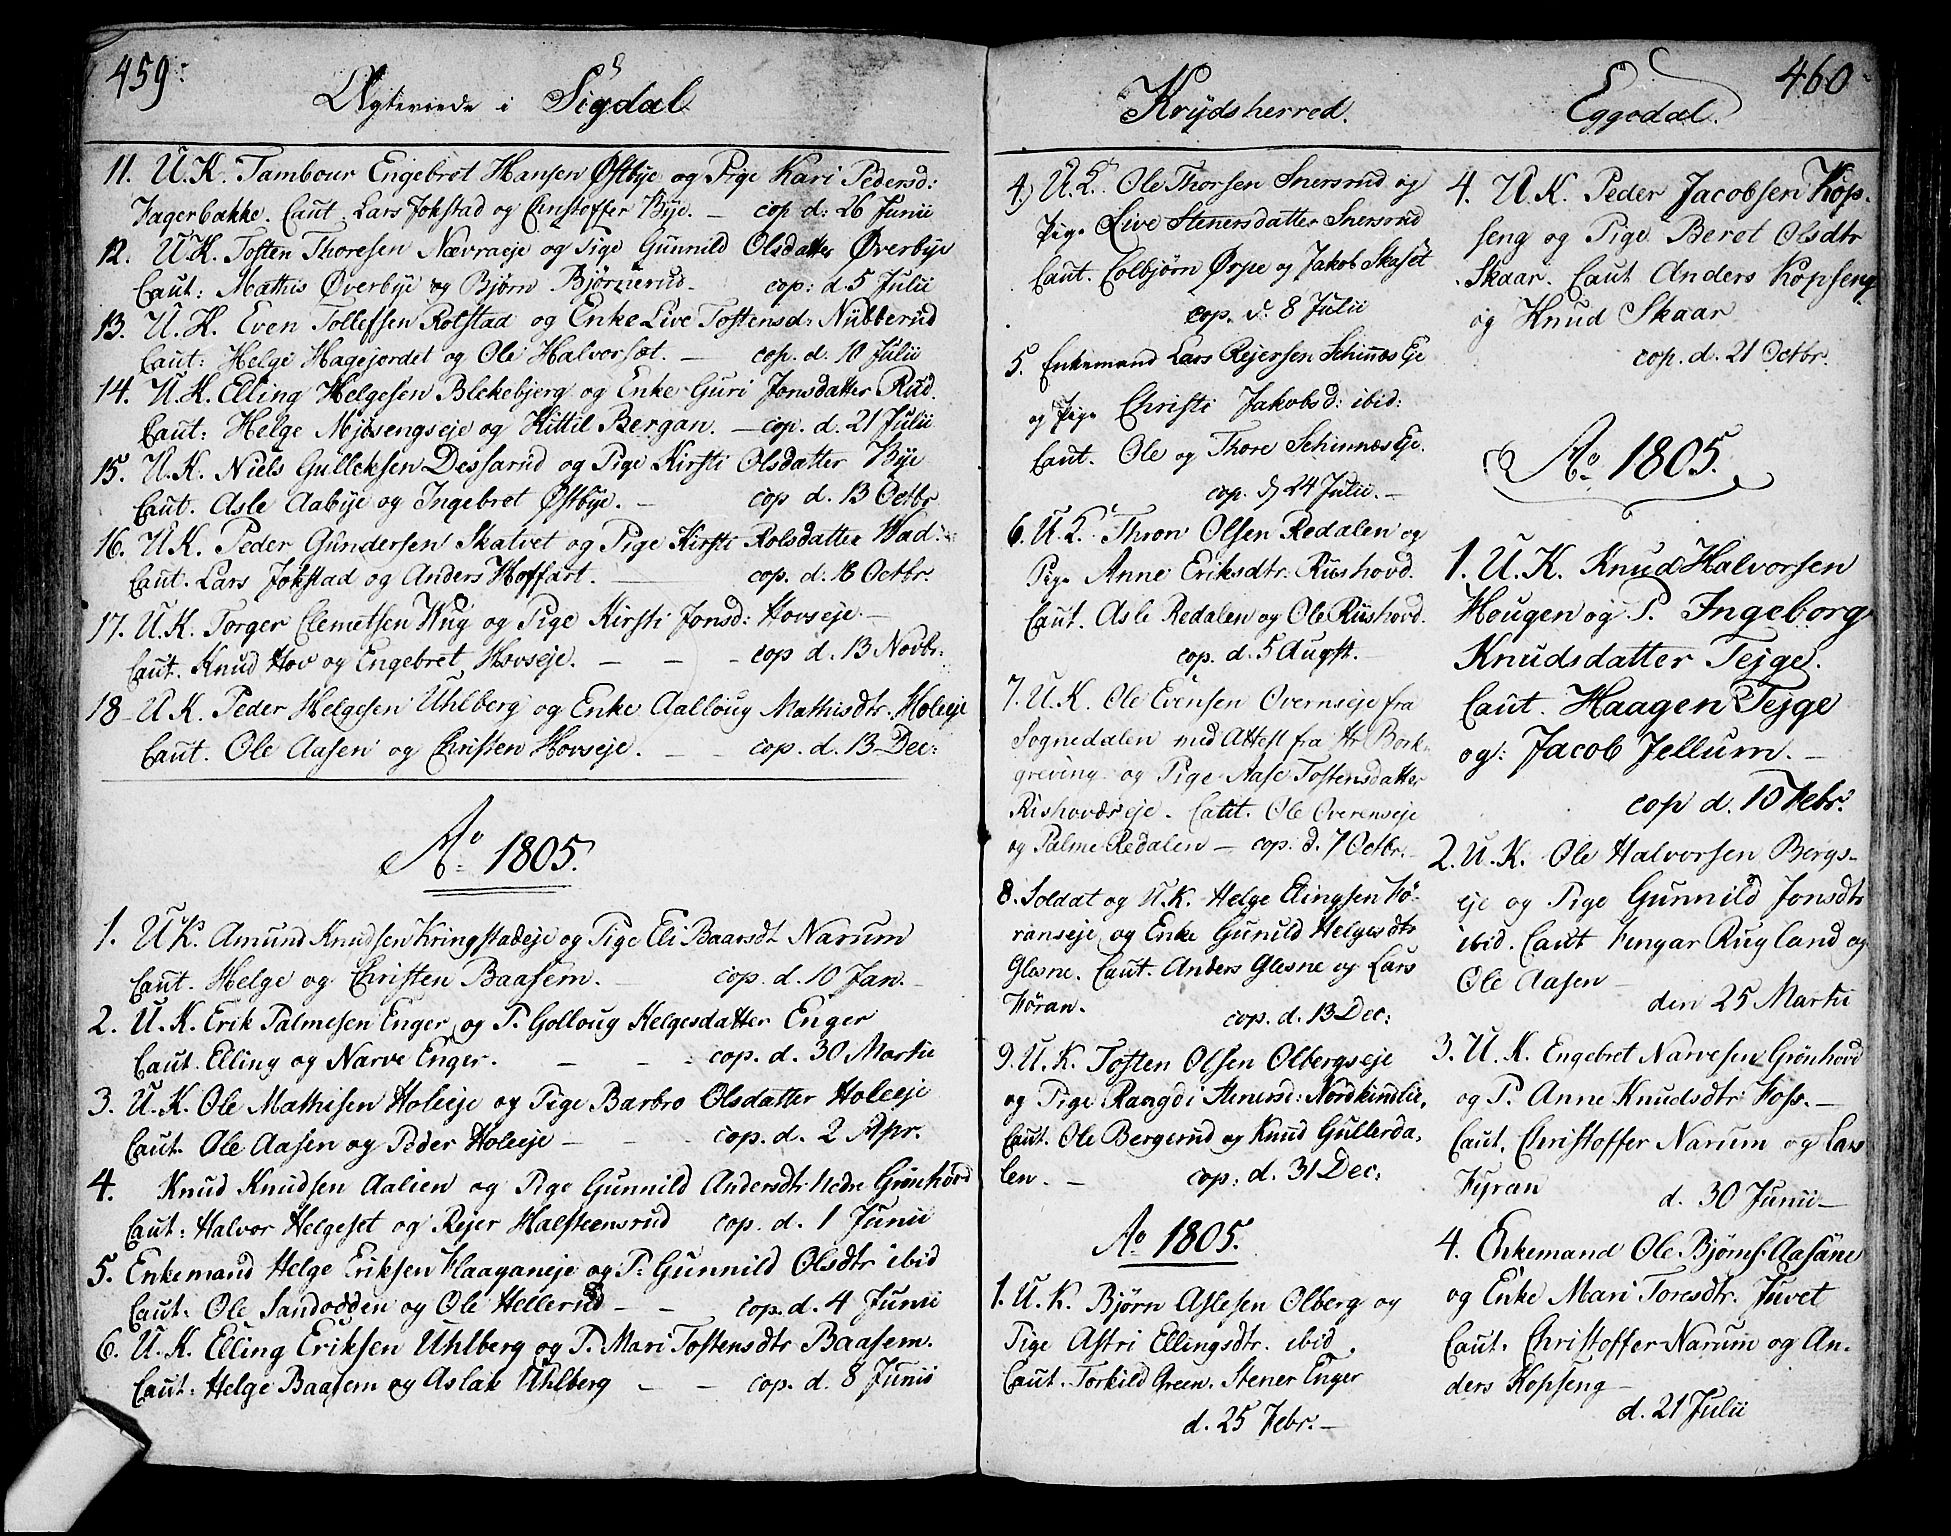 459.
Ægteviede i Sigdal
11. U.K. Tambour Engebret Hansen Østbye og Pige Kari Pedersd:
Jagerbakke. Caut. Lars Jokstad og Christoffer Bye. — cop d: 26 Junii
12. U.K. Tosten Thoresen Nævraeje og Pige Gunnild Olsdatter Øverbye
Caut: Mathis Øverbye og Bjørn Bjørnerud. cop: d. 5 Julii
13. U.K. Even Tollefsen Rolstad og Enke Live Tostensd: Nubberud
Caut: Helge Hagejordet og Ole Halvorset. — cop. d. 10 Julii
14. U.K. Elling Helgesen Blekebjerg og Enke Guri Jonsdatter Rud.
Caut: Helge Mjøsengseje og Kittil Bergan. — cop. d. 21 Julii
15. U.K. Niels Gulleksen Dessarud og Pige Kirsti Olsdatter Bye
Caut. Asle Aabye og Ingebret Østbye. — cop d. 13 Octbr
16. U.K. Peder Gundersen Skatvet og Pige Kirsti Rolsdatter Wad.
Caut. Lars Jokstad og Anders Hoffart. — cop. d. 18 Octbr.
17. U.K. Torger Clemetsen Wug og Pige Kirsti Jonsd: Hovseje —
Caut. Knud Hov og Engebret Hovseje. — — — cop d. 13 Novbr.
18 — U.K. Peder Helgesen Uhlberg og Enke Aalloug Mathisdtr. Holeeje
Caut. Ole Aasen og Christen Hovseje. — — cop. d. 13 Dec:
Ao 1805.
1. U K. Amund Knudsen Kringstadeje og Pige Eli Baarsdt. Narum
Caut. Helge og Christen Baasem. — cop. d. 10 Jan. —
2. U.K. Erik Palmesen Enger og P. Golloug Helgesdatter Enger
Caut. Elling og Narve Enger. — — — cop. d. 30 Martii
3. U.K. Ole Mathisen Holeeje og Pige Barbro Olsdatter Holeeje
Caut. Ole Aasen og Peder Holeeje — — — cop. d. 2 Apr.
4. Knud Knudsen Aalien og Pige Gunnild Andersdtr. Nedre Grønhovd
Caut: Halvor Helgeset og Rejer Halsteensrud cop. d. 1 Junii
5. Enkemand Helge Eriksen Haaganeje og P: Gunnild Olsdtr ibid
Caut. Ole Sandodden og Ole Hellerud — — cop. d. 4 Junii
6. U.K. Elling Eriksen Uhlberg og P. Mari Tostensdtr Baasem.
Caut: Helge Baasem og Aslak Uhlberg — — cop. d. 8 Junii
Krydsherred.
4) U.K. Ole Thorsen Snersrud og
Pige Live Stenersdatter Snersrud
Caut. Colbjørn Ørpe og Jakob Skaset
cop. d. 8 Julii
5. Enkemand Lars Rejersen Schinnes Eje
og Pige Christi Jakobsd: ibid:
Caut. Ole og Thore Schinnes Eje.
cop. d 24 Julii. —
6. U.K. Thron Olsen Redalen og
Pige Anne Eriksdtr. Ruushovd.
Caut. Asle Redalen og Ole Ruushovd.
cop. d. 5 Augst. —
7. U.K. Ole Evensen Overnseje fra
Sognedalen med Attest fra Hr Bork-
greving og Pige Aase Tostensdatter
Rishovdseje. Caut. Ole Overenseje
og Palme Redalen — cop. d. 7 Octbr. —
8. Soldat og U.K. Helge Elingsen Fø-
ranseje og Enke Gunild Helgesdtr
Glesne. Caut. Anders Glesne og Lars
Føran. cop. d. 13 Dec:
9. U.K. Tosten Olsen Olbergseje
og Pige Rangdi Stenersd: Nordkindlie,
Caut. Ole Bergerud og Knud Gullerda,
len. — cop: d. 31 Dec:
Ao 1805.
1. U.K. Bjørn Aslesen Olberg og
Pige Astri Ellingsdtr. ibid.
Caut. Torkild Green. Stener Enger
d. 25 Febr. —
460
Eggedal.
4. U.K. Peder Jacobsen Kop-
seng og Pige Beret Olsdtr
Skaar. Caut Anders Kopseng
og Knud Skaar
cop. d. 21 Octbr.
Ao 1805.
1. U.K. Knud Halvorsen
Hougen og P. Ingeborg
Knudsdatter Tejge.
Caut. Haagen Tejge
og: Jacob Jellum. —
cop d. 10 Febr.
2. U.K. Ole Halvorsen Bergs-
eje og Pige Gunnild Jonsdtr
ibid. Caut Fengar Rugland og
Ole Aasen —
den 25 Martii
3. U.K. Engebret Narvesen Grønhovd
og P. Anne Knudsdtr: Foss. —
Caut. Christoffer Narum og Lars
Fyran d. 30 Junii —
4. Enkemand Ole Bjørns. Aasene
og Enke Mari Toresdtr. Juvet
Caut. Christoffer Narum og An-
ders Kopseng —
d. 21 Julii